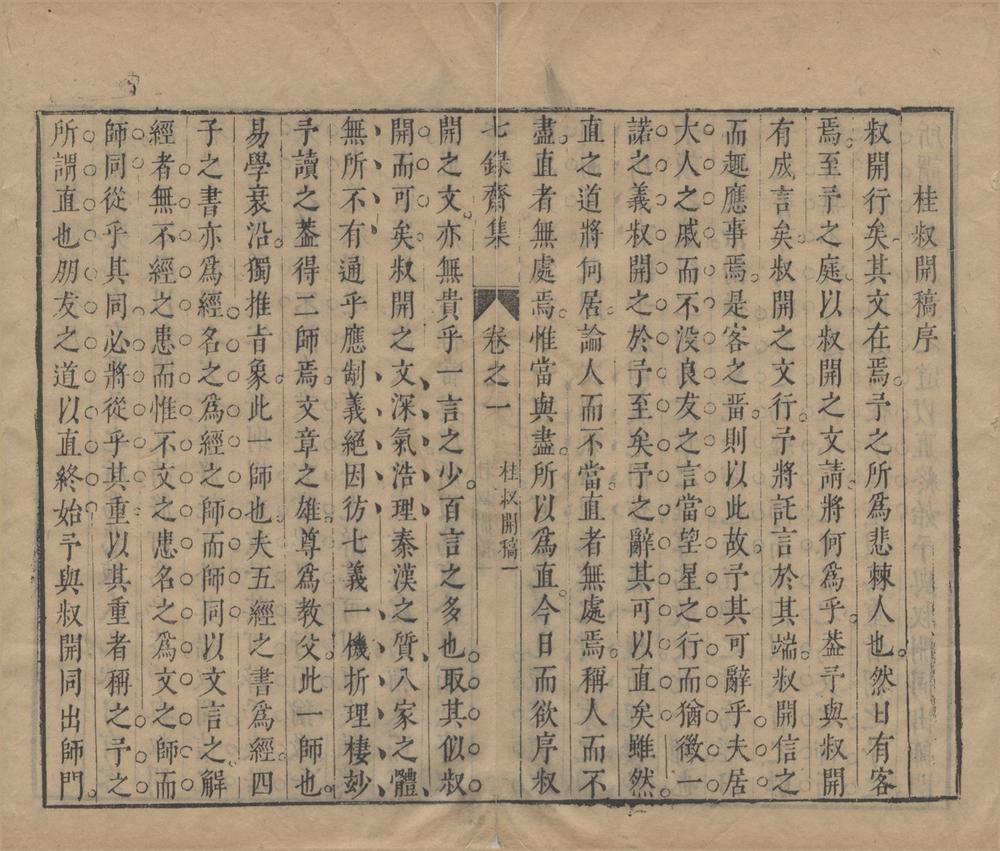 桂叔開稿序
叔開行矣其文在焉予之所爲悲棘人也然日有客
焉至予之庭以叔開之文請將何爲乎葢予與叔開
有成言矣叔開之文行予將託言於其端叔開信之
而趣應事焉是客之晋則以此故予其可辭乎夫居
大人之戚而不没良友之言當望星之行而猶徴一
諾之義叔開之於予至矣予之辭其可以直矣雖然
直之道將何居論人而不當直者無處焉稱人而不
盡直者無處焉惟當與盡所以爲直今日而欲序叔
七錄齋集 卷之一 桂叔開稿一
開之文亦無貴乎一言之少百言之多也取其似叔
開而可矣叔開之文深氣浩理秦漢之質八家之體
無所不有通乎應制義絕因彷七義一機折理棲妙
予讀之葢得二師焉文章之雄尊爲教父此一師也
易學衰沿獨推肯象此一師也夫五經之書爲經四
子之書亦爲經名之爲經之師而師同以文言之解
經者無不經之患而惟不文之患名之爲文之師而
師同從乎其同必將從乎其重以其重者稱之予之
所謂直也朋友之道以直終始予與叔開同出師門